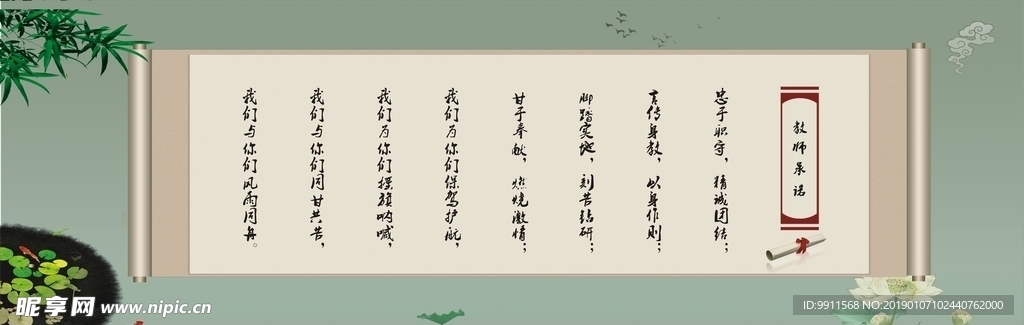 教师承诺
忠于职守，精诚团结；
言传身教，以身作则；
脚踏实地，刻苦钻研；
甘于奉献，燃烧激情；
我们为你们保驾护航，
我们为你们摇旗呐喊，
我们与你们同甘共苦，
我们与你们风雨同舟。
昵享网 www.nipic.cn
ID:9911568 NO:20190107102440762000